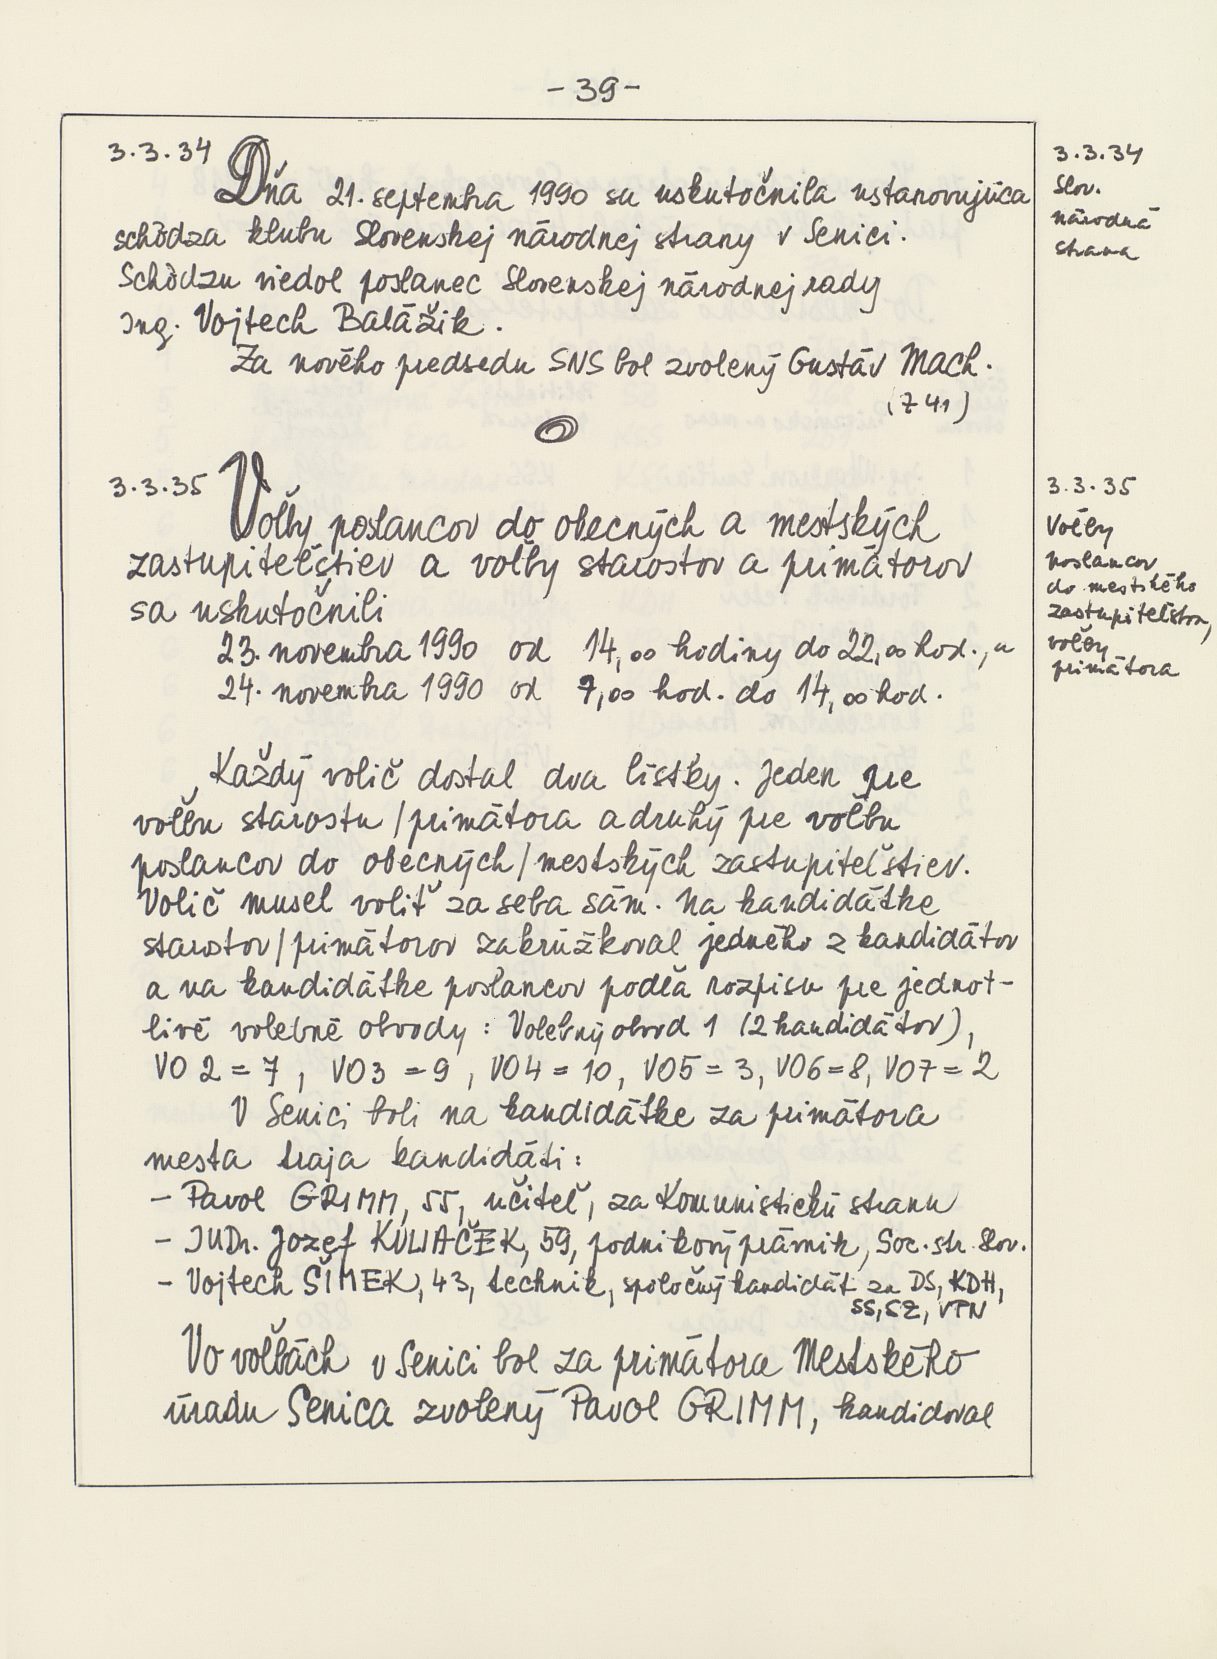 - 39 -
3.3.34 Dňa 21. septembra 1990 sa uskutočnila ustanovujúca
schôdza klubu Slovenskej národnej strany v Senici.
Schôdzu viedol poslanec Slovenskej národnej rady
Ing. Vojtech Balážik.
Za nového predsedu SNS bol zvolený Gustáv Mach.
(Z 41)
3.3.34
Slov.
národná
strana
3.3.35 Voľby poslancov do obecných a mestských
zastupiteľstiev a voľby starostov a primátorov
sa uskutočnili
23. novembra 1990 od 14,00 hodiny do 22,00 hod., a
24. novembra 1990 od 7,00 hod. do 14,00 hod.
3.3.35
Voľby
poslancov
do mestského
zastupiteľstva,
voľby
primátora
Každý volič dostal dva lístky. Jeden pre
voľbu starostu/primátora a druhý pre voľbu
poslancov do obecných/mestských zastupiteľstiev.
Volič musel voliť za seba sám. Na kandidátke
starostov/primátorov zakrúžkoval jedného z kandidátov
a na kandidátke poslancov podľa rozpisu pre jednot-
livé volebné obvody: Volebný obvod 1 (2 kandidátov),
VO 2 = 7, VO3 = 9, VO4 = 10, VO5 = 3, VO6 = 8, VO7 = 2
V Senici boli na kandidátke za primátora
mesta traja kandidáti:
- Pavol GRIMM, 55, učiteľ, za Komunistickú stranu
- JUDr. Jozef KULIAČEK, 59, podnikový právnik, Soc. str. Slov.
- Vojtech ŠIMEK, 43, technik, spoločný kandidát za DS, KDH,
SS, SZ, VPN
Vo voľbách v Senici bol za primátora Mestského
úradu Senica zvolený Pavol GRIMM, kandidoval